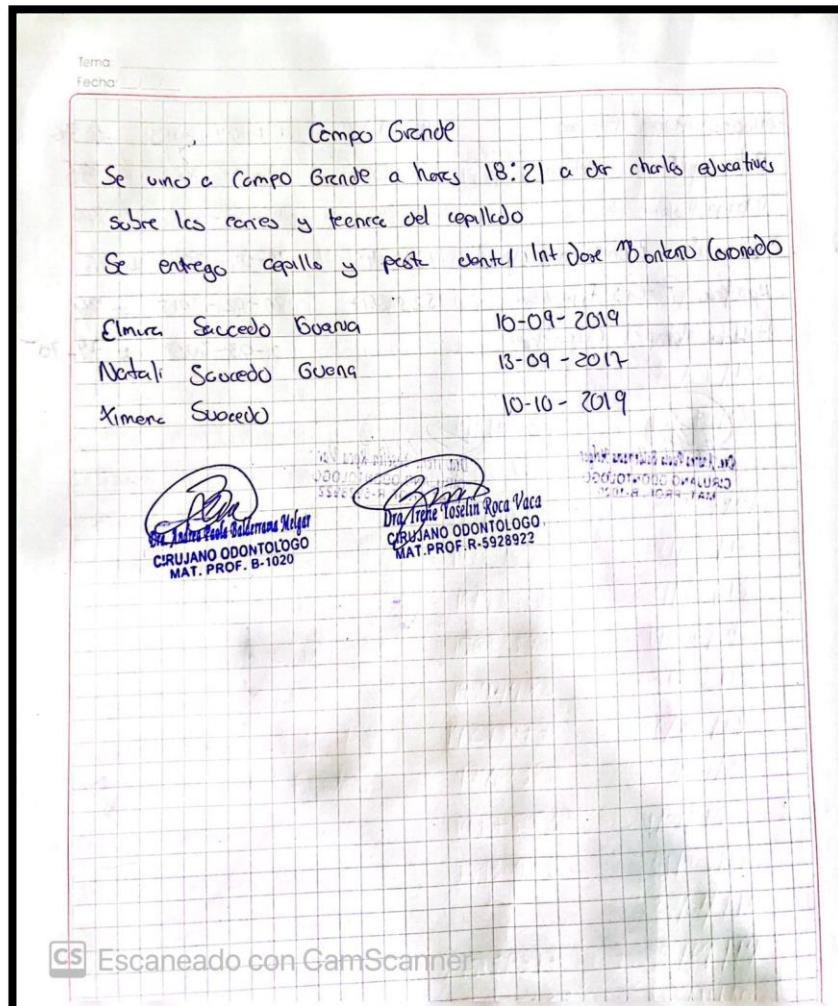 Tema:
Fecha:
Campo Grande
Se vino a Campo Grande a horas 18:21 a dar charlas educativas
sobre las caries y tecnica del cepillado
Se entrego cepillo y pasta dental Int Jose Montero Coronado
Elmira Saucedo 10-09-2019
Natali Saucedo Guena 13-09-2017
Ximena Suacedo 10-10-2019
Dra. Andrea Paola Balderrama Melgar
CIRUJANO ODONTOLOGO
MAT. PROF. B-1020
Dra. Irene Yoselin Roca Vaca
CIRUJANO ODONTOLOGO
MAT.PROF.R-5928922
CS Escaneado con CamScanner